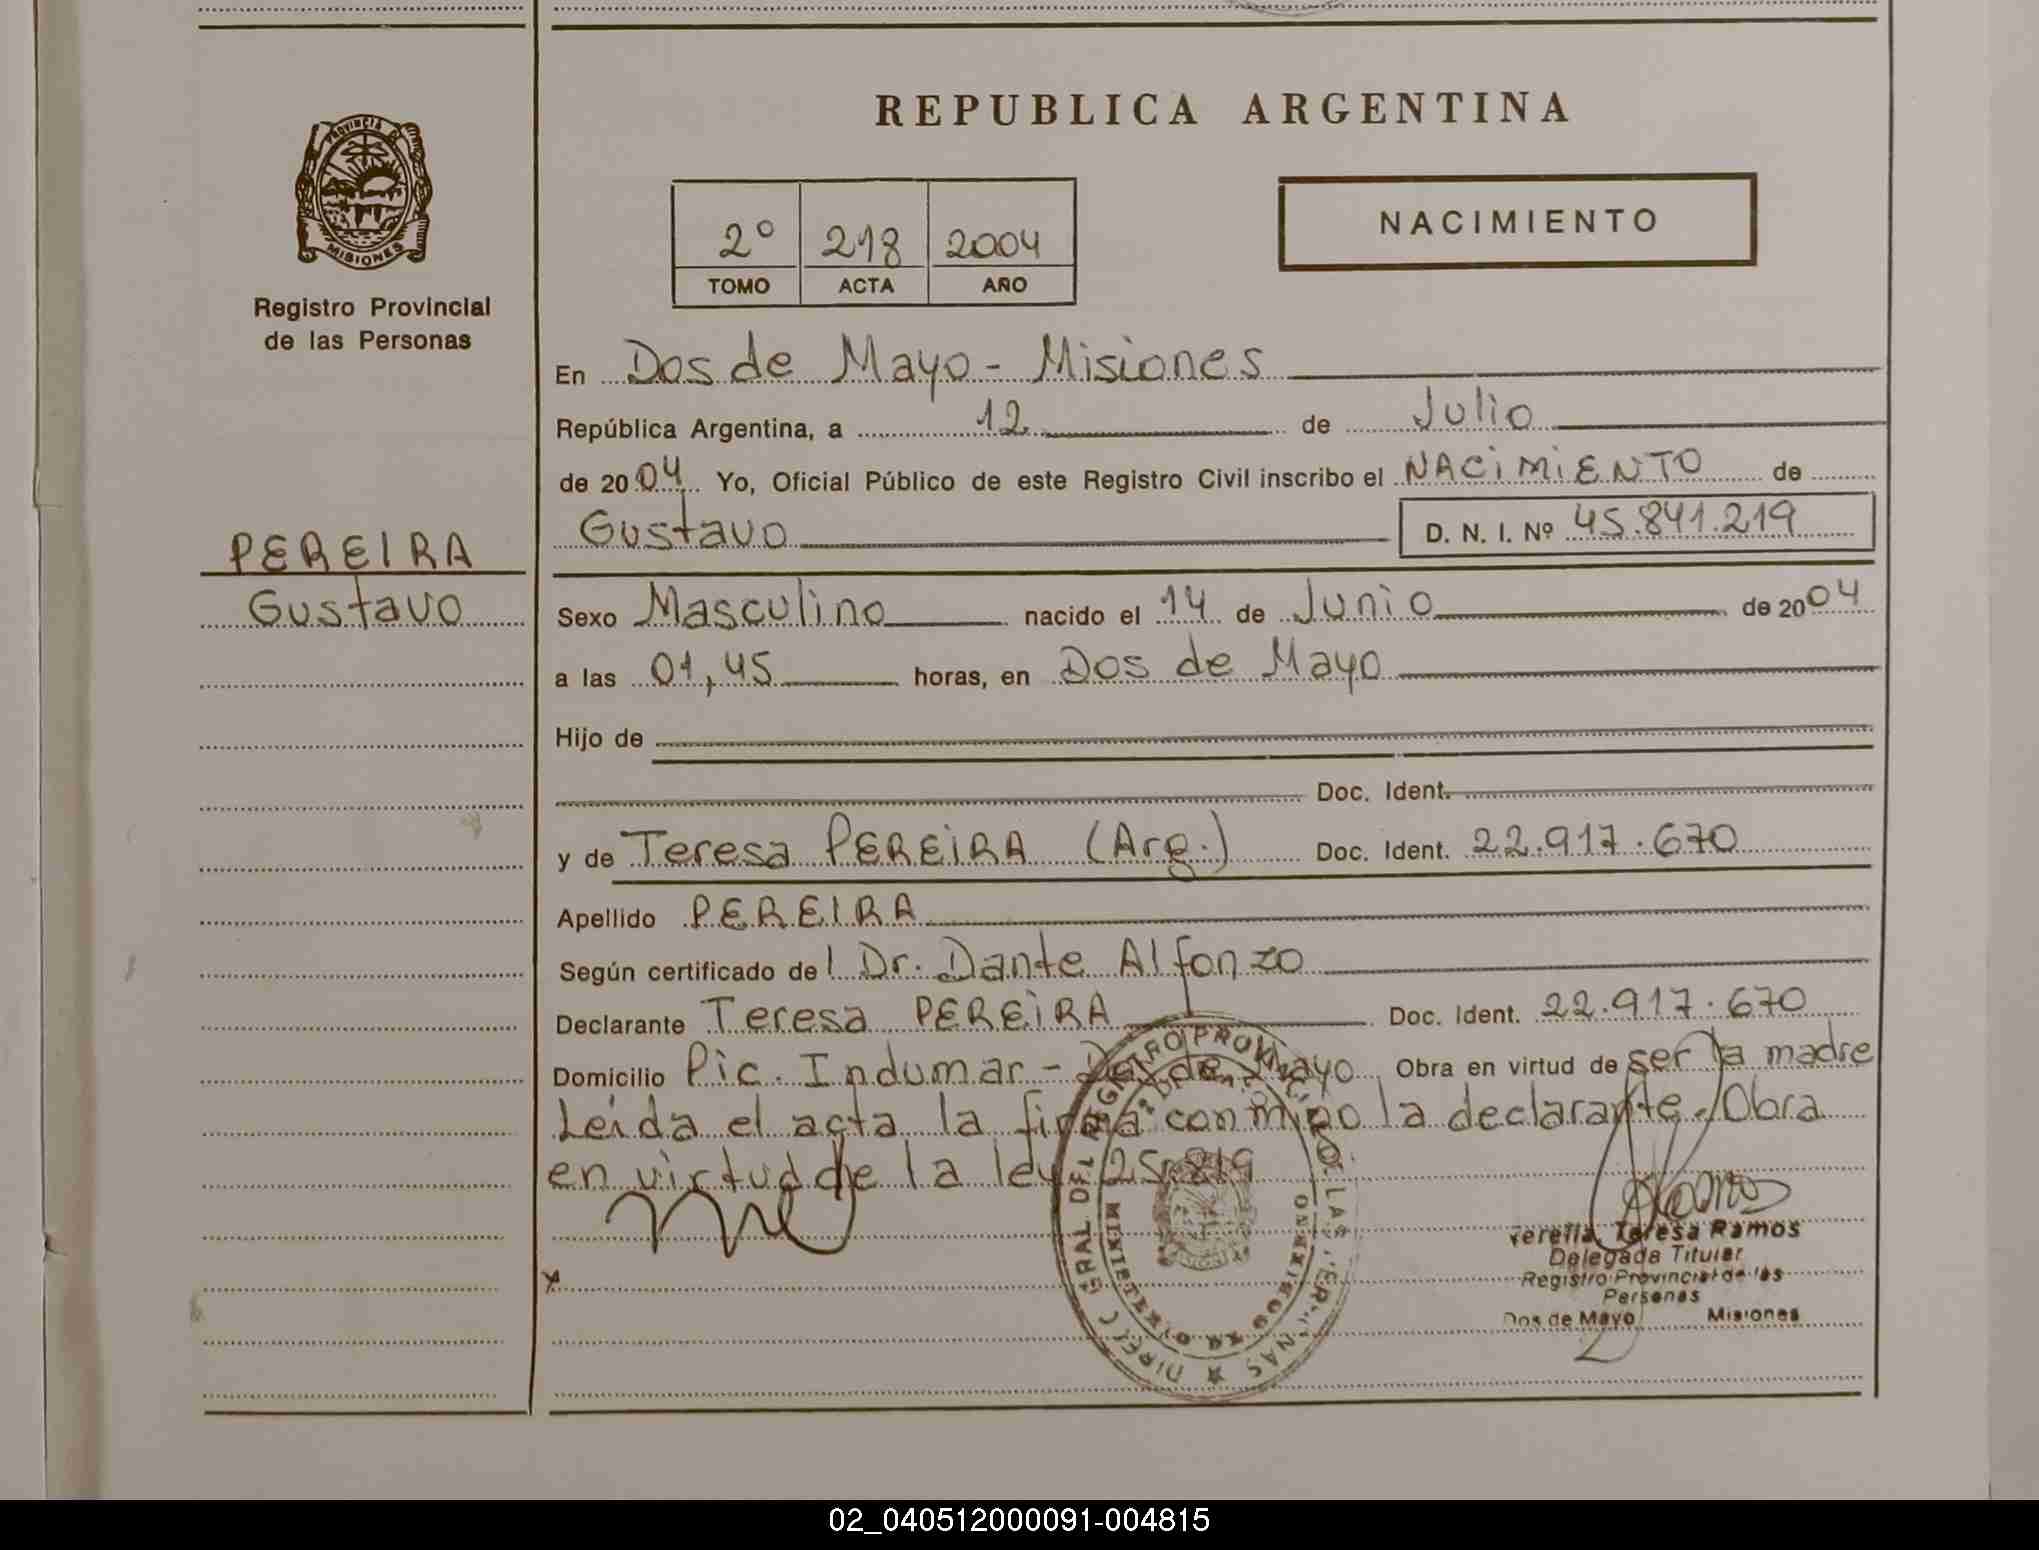 REPUBLICA ARGENTINA
PROVINCIA D
MISIONES
Registro Provincial
de las Personas
2º 218 2004
TOMO ACTA AÑO
NACIMIENTO
En Dos de Mayo - Misiones
República Argentina, a 12 de Julio
de 2004 Yo, Oficial Público de este Registro Civil inscribo el NACIMIENTO de
Gustavo D. N. I. Nº 45.841.219
PEREIRA
Gustavo
Sexo Masculino nacido el 14 de Junio de 2004
a las 01,45 horas, en Dos de Mayo
Hijo de
Doc. Ident.
y de Teresa PEREIRA (Arg.) Doc. Ident. 22.917.670
Apellido PEREIRA
Según certificado del Dr. Dante Alfonzo
Declarante Teresa PEREIRA Doc. Ident. 22.917.670
Domicilio Pic. Indumar - Dos de Mayo Obra en virtud de ser la madre
Leída el acta la firma conmigo la declarante. Obra
en virtud de la ley 25.819
Teresa Ramos
Delegada Titular
Registro Provincial de las
Personas
Dos de Mayo Misiones
02_040512000091-004815